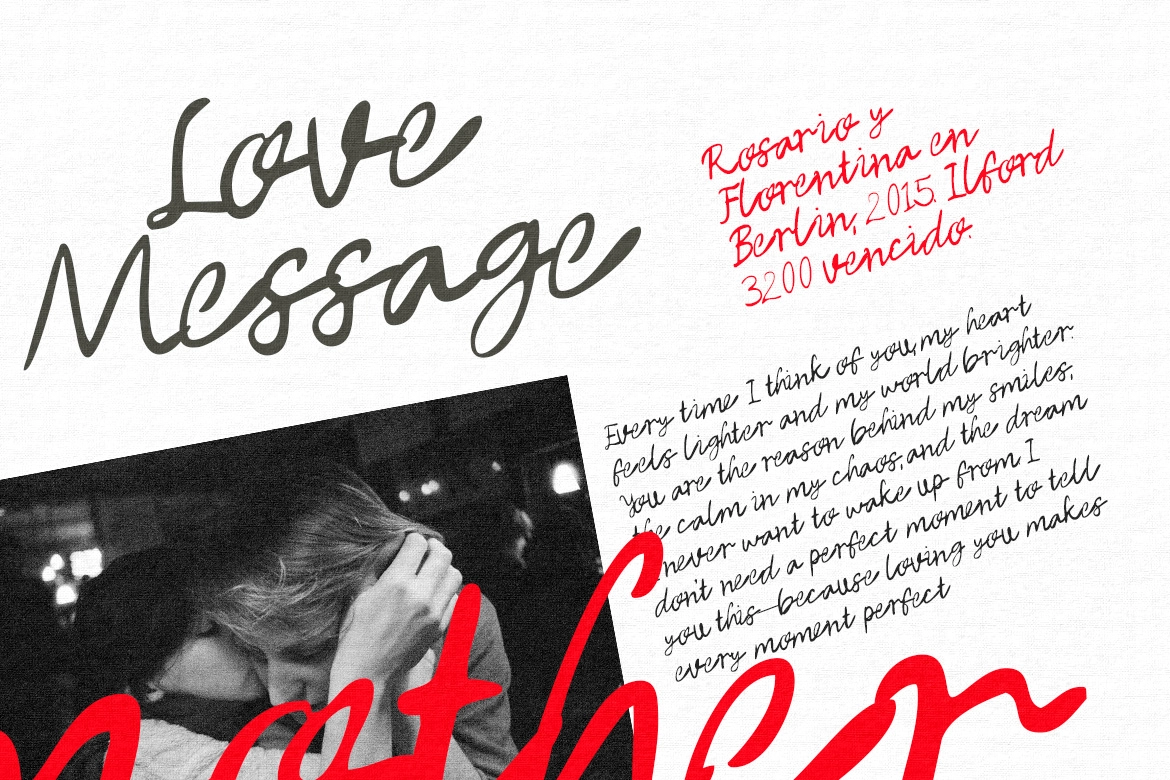 Love
Message
Rosario y
Florentina en
Berlin, 2015. Ilford
3200 vencido.
Every time I think of you, my heart
feels lighter and my world brighter.
You are the reason behind my smiles,
the calm in my chaos, and the dream
never want to wake up from. I
don't need a perfect moment to tell
you this—because loving you makes
every moment perfect